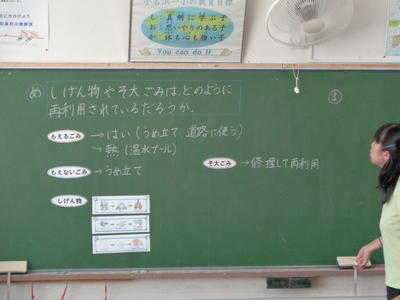 小名浜一小の教育目標
し:真剣に学ぶ子
お:思いやりのある子
か:体も心も強い子
You can do it.
め しげん物やそ大ごみは、どのように
再利用されているだろうか。
ま
もえるごみ →はい(うめ立て、道路に使う)
→熱(温水プール)
もえないごみ →うめ立て
そ大ごみ →修理して再利用
しげん物